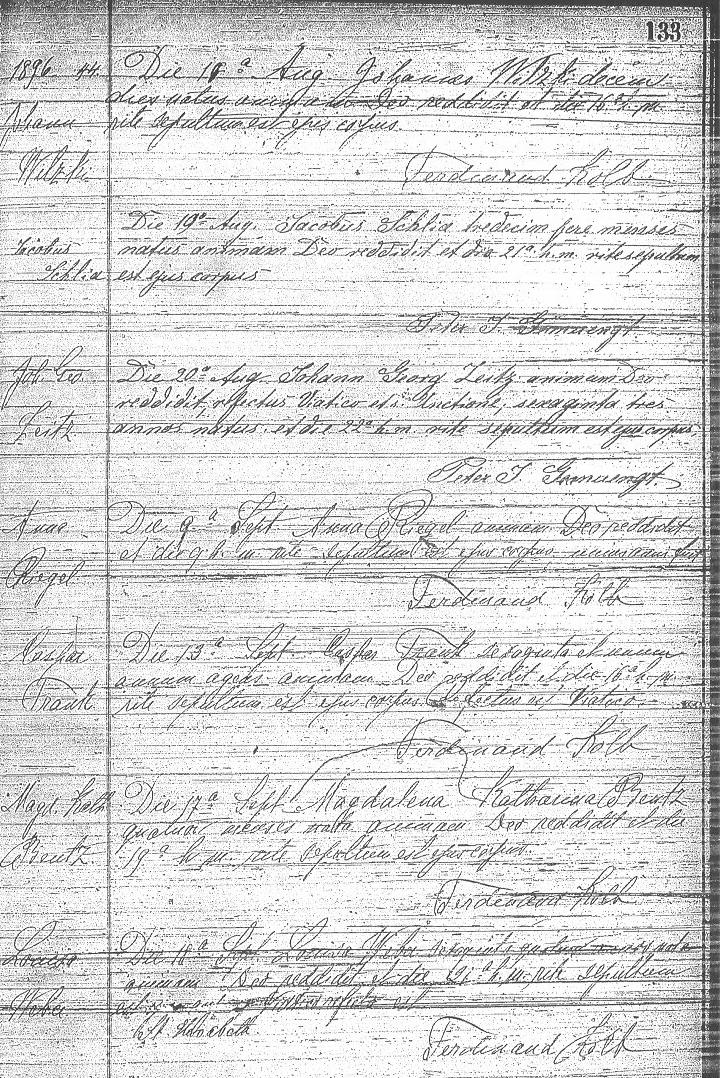 133
1896 44. Die 18ª Aug. Johannes Witzki decem
dies natus animam Deo reddidit et die 16ª h.m.
Johann rite sepultum est ejus corpus.
Witzki Ferdinand Kolb
Die 19ª Aug. Jacobus Schlia tredecim fere menses
Jacobus natus animam Deo reddidit et die 21ª h.m. rite sepultum
Schlia est ejus corpus
Peter J.
Joh. Geo Die 20ª Aug. Johann Georg Leitz animam Deo
reddidit, refectus Viatico et s. Unctione, sexaginta tres
Leitz annos natus, et die 22ª h.m. rite sepultum est ejus corpus.
Peter J.
Anna Die 9ª Sept Anna Riegel animam Deo reddidit
et die 9 h. m. rite sepultum est ejus corpus
Riegel
Ferdinand Kolb
Caspar Die 13ª Sept Caspar Frank sexaginta et unum
annum agens animam Deo reddidit et die 16ª h.m.
Frank rite sepultum est ejus corpus. Refectus est Viatico.
Ferdinand Kolb
Magd. Kath Die 17ª Sept Magdalena Katharina Bentz
quatuor menses nata animam Deo reddidit et die
Bentz 19ª h.m. rite sepultum est ejus corpus.
Ferdinand Kolb
Louisa Die 18ª Sept Louisa Weber nata
animam Deo reddidit et die 21ª h.m. rite sepultum
Weber est
Ferdinand Kolb